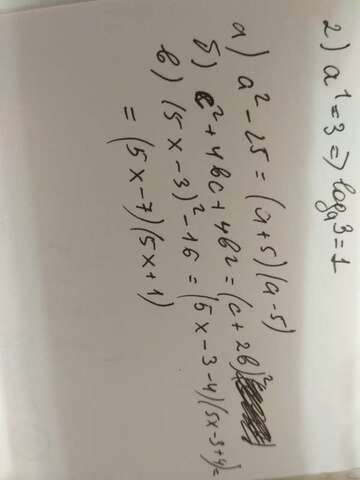 2) a¹=3 => logₐ3=1
а) a²-25=(a+5)(a-5)
б) c²+4bc+4b²=(c+2b)²
в) (5x-3)²-16=(5x-3-4)(5x-3+4)=
=(5x-7)(5x+1)